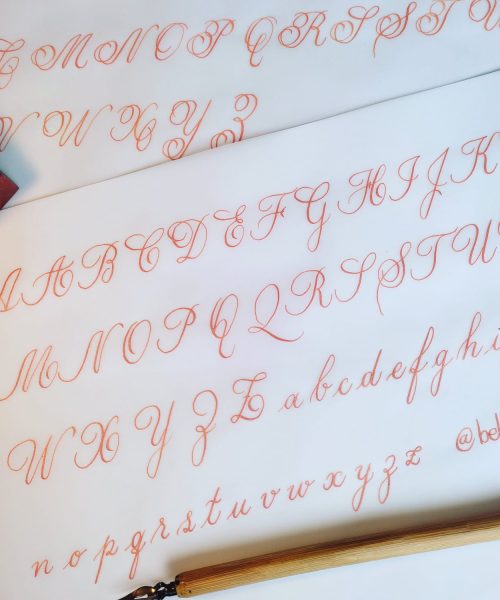 T M N O P Q R S T U
V W X Y Z
A A B C D E F G H I J K
M N O P Q Q R S S T U
W X Y Z Z a b c d e f g h i
n o p q r s t u v w x y z z